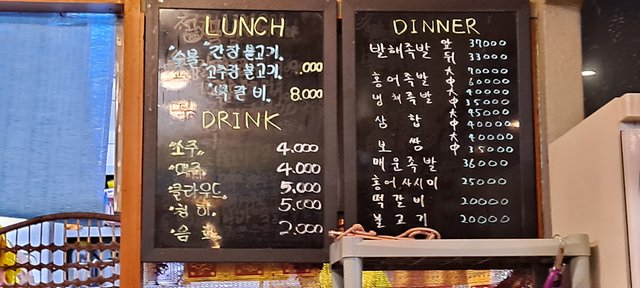 LUNCH
"숯불" 간장 불고기.
"고추장 불고기. .000
"떡갈비. 8.000
DRINK
소주, 4.000
맥주, 4.000
클라우드, 5.000
청하. 5.000
음료 2.000
DINNER
발해족발 앞 37000
뒤 33000
홍어족발 大 70000
中 60000
냉채족발 大 40000
中 35000
삼합 大 45000
中 40000
보쌈 大 40000
中 35000
매운족발 36000
홍어사시미 25000
떡갈비 20000
불고기 20000